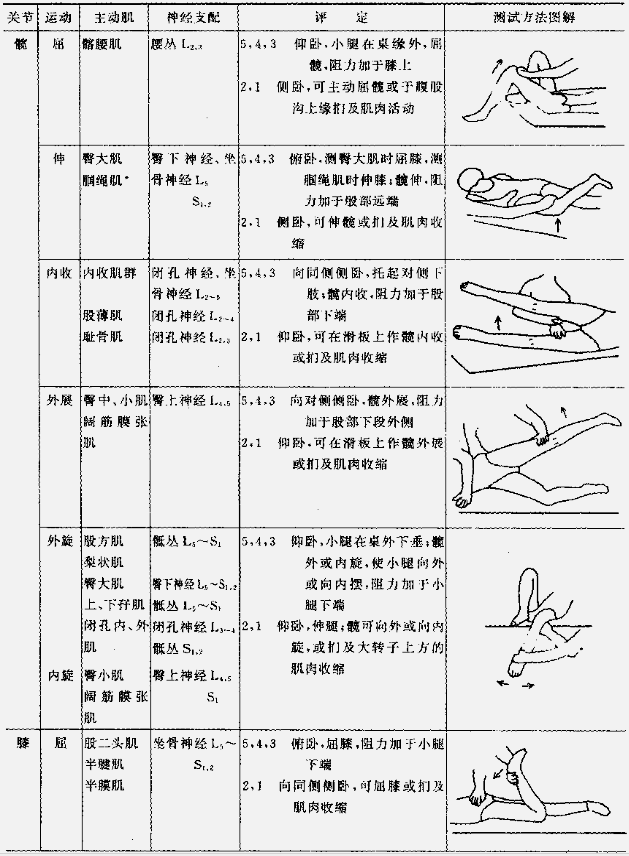 关节 运动 主动肌 神经支配 评 定 测试方法图解
髋 屈 髂腰肌 腰丛 L2,3 5,4,3 仰卧,小腿在桌缘外,屈
髋,阻力加于膝上
2,1 侧卧,可主动屈髋或于腹股
沟上缘扪及肌肉活动
伸 臀大肌 臀下神经、坐 5,4,3 俯卧,测臀大肌时屈膝,测
腘绳肌* 骨神经 L5 腘绳肌时伸膝;髋伸,阻
S1,2 力加于股部远端
2,1 侧卧,可伸髋或扪及肌肉收
缩
内收 内收肌群 闭孔神经、坐 5,4,3 向同侧侧卧,托起对侧下
骨神经 L2~5 肢;髋内收,阻力加于股
股薄肌 闭孔神经 L2~4 部下端
耻骨肌 闭孔神经 L2,3 2,1 仰卧,可在滑板上作髋内收
或扪及肌肉收缩
外展 臀中、小肌 臀上神经 L4,5 5,4,3 向对侧侧卧,髋外展,阻力
阔筋膜张 加于股部下段外侧
肌 2,1 仰卧,可在滑板上作髋外展
或扪及肌肉收缩
外旋 股方肌 骶丛 L5~S1 5,4,3 仰卧,小腿在桌外下垂;髋
梨状肌 外或内旋,使小腿向外
臀大肌 臀下神经 L5~S1,2 或向内摆,阻力加于小
上、下孖肌 骶丛 L5~S1 腿下端
闭孔内、外 闭孔神经 L3~4 2,1 仰卧,伸腿;髋可向外或向内
肌 骶丛 S1,2 旋,或扪及大转子上方的
内旋 臀小肌 臀上神经 L4,5 肌肉收缩
阔筋膜张 S1
肌
膝 屈 股二头肌 坐骨神经 L5~ 5,4,3 俯卧,屈膝,阻力加于小腿
半腱肌 S1,2 下端
半膜肌 2,1 向同侧侧卧,可屈膝或扪及
肌肉收缩